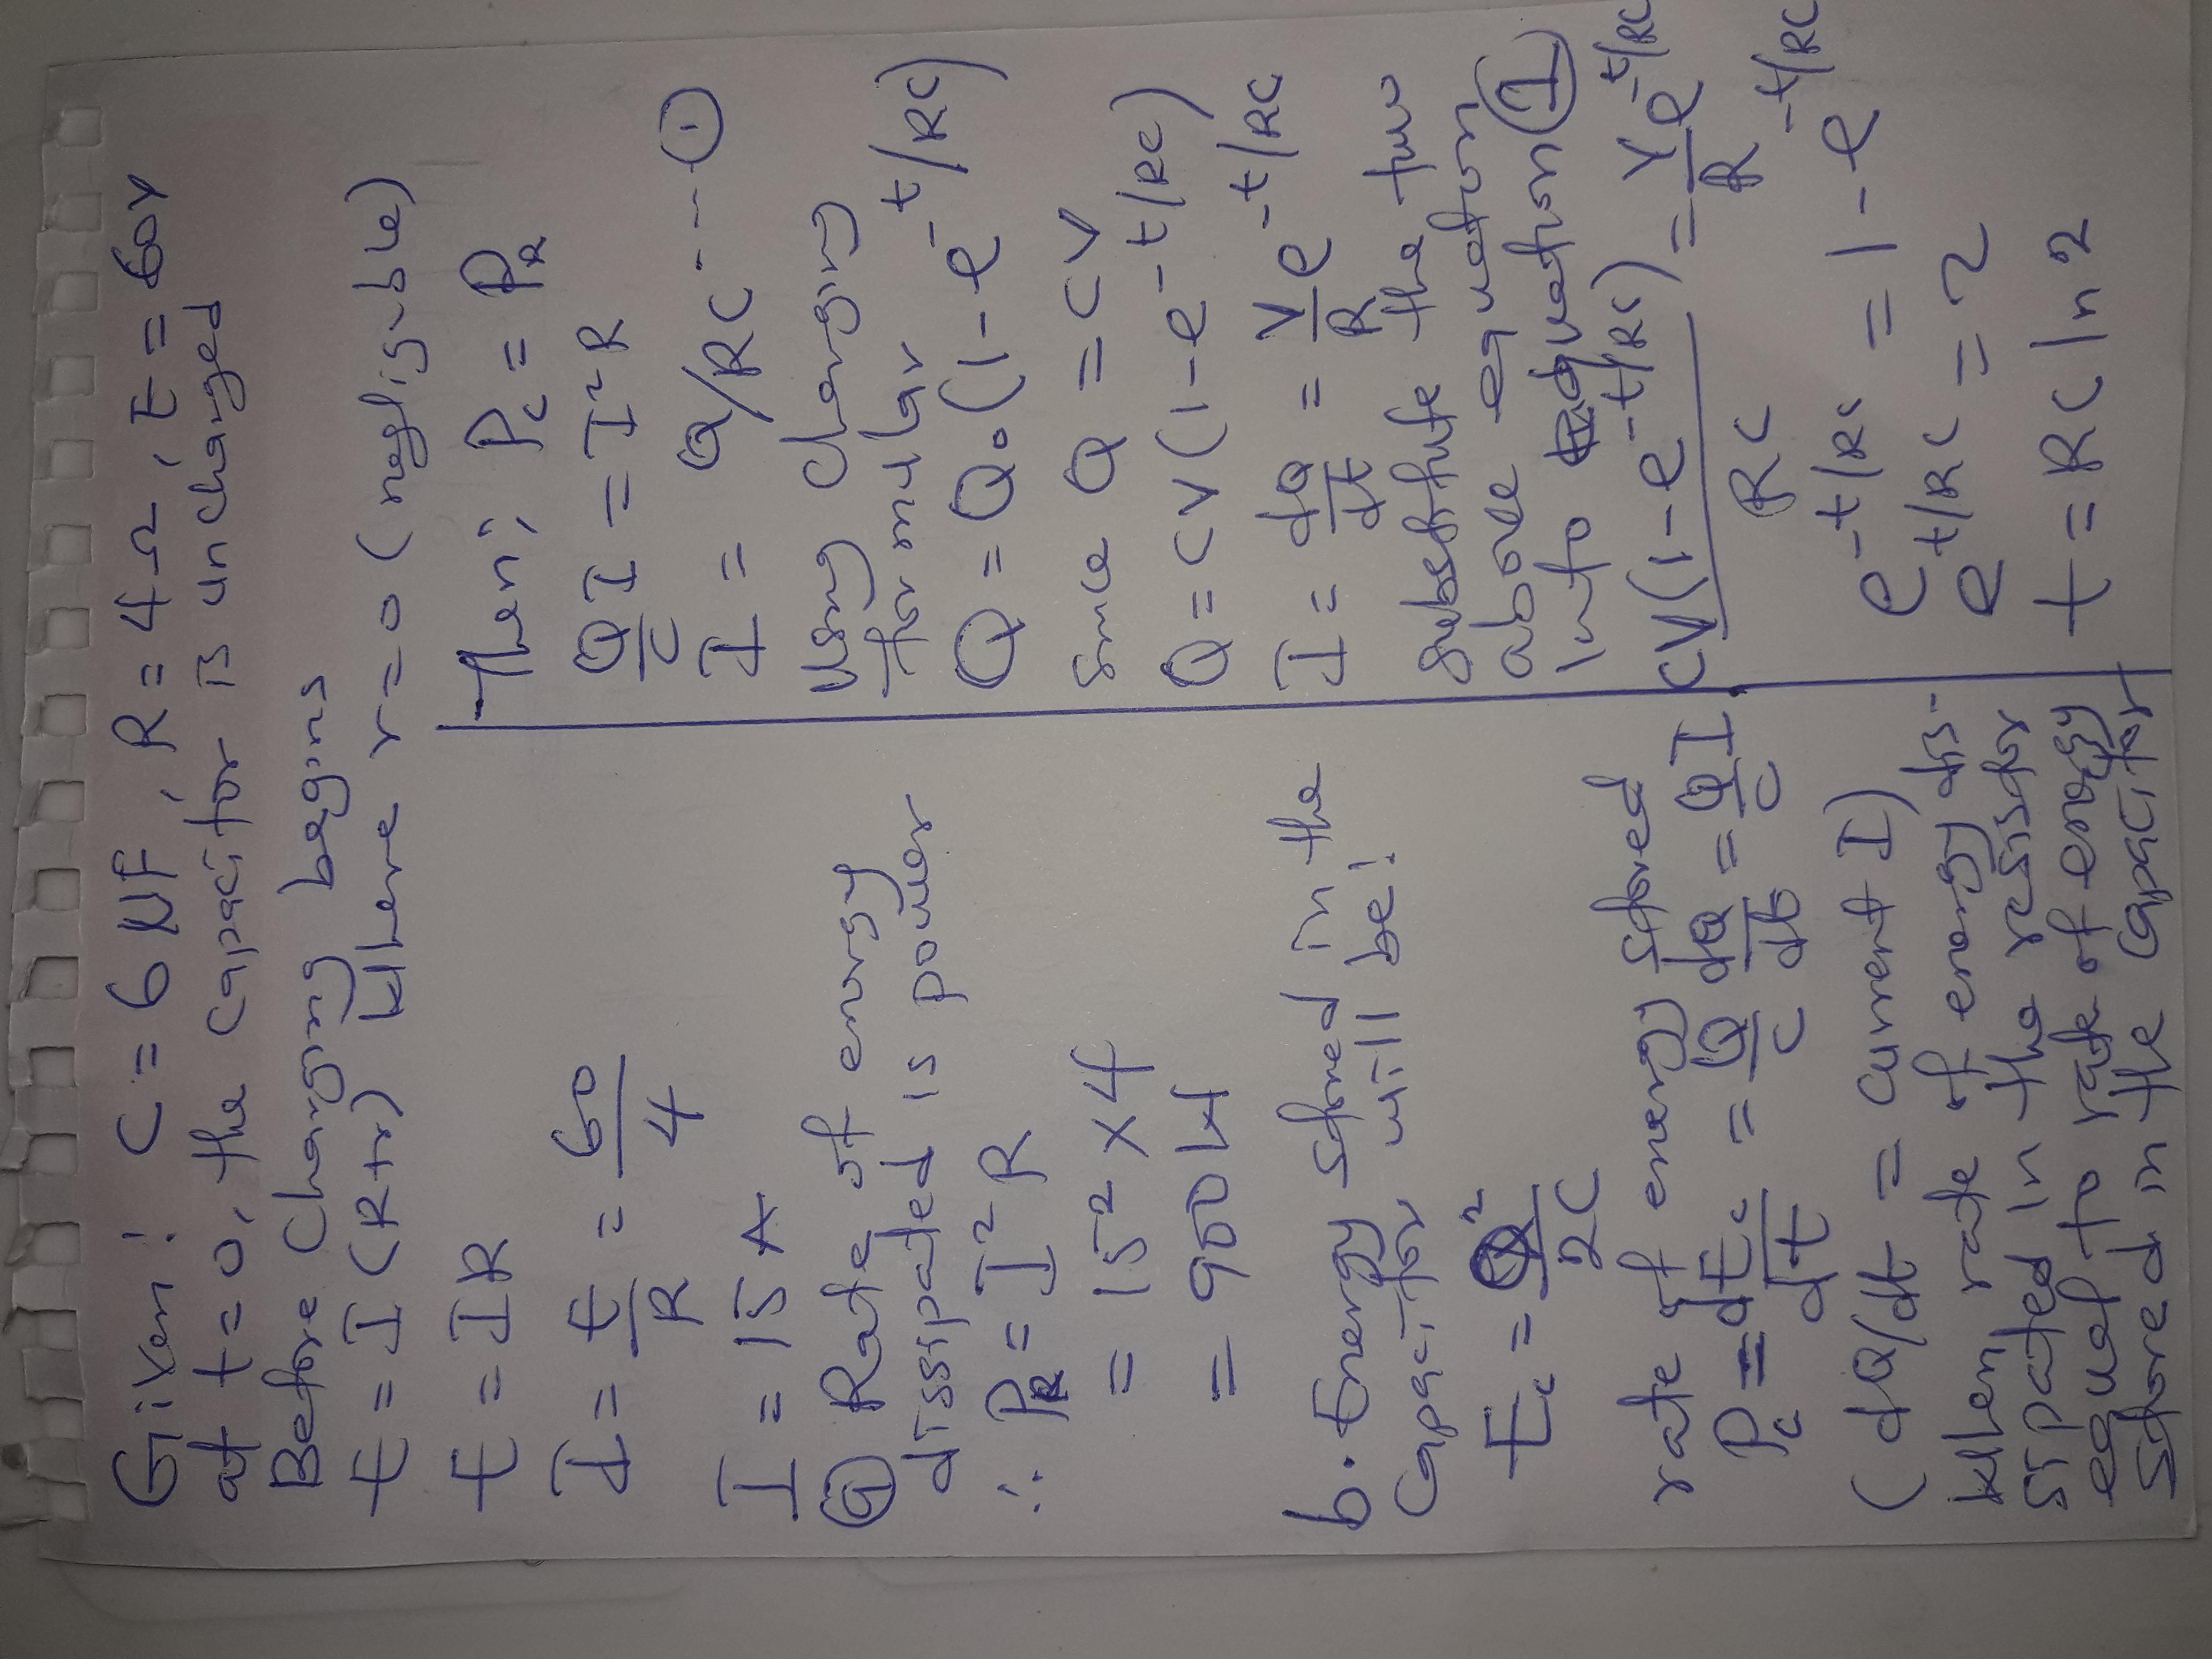 Given: C = 6 µF, R = 4Ω, E = 60V
at t = 0, the capacitor is uncharged
Before Charging begins
E = I (R+r) Where r = 0 (negligible)
E = IR
I = E/R = 60/4
I = 15 A
(a) Rate of energy
dissipated is power
∴ P_R = I²R
= 15² × 4
= 900W
b. Energy stored in the
Capacitor will be:
E_c = Q²/2C
rate of energy stored
P_c = dE_c/dt = Q/C dQ/dt = Q/C I
(dQ/dt = current I)
When rate of energy dis-
sipated in the resistor
equal to rate of energy
stored in the capacitor
Then; P_c = P_R
Q/C I = I²R
I = Q/RC ---- (1)
Using charging
formular
Q = Q₀(1-e^-t/RC)
Since Q = CV
Q = CV(1-e^-t/RC)
I = dQ/dt = V/R e^-t/RC
Substitute the two
above equation
into equation (1)
CV(1-e^-t/RC)/RC = V/R e^-t/RC
e^-t/RC = 1-e^-t/RC
e^t/RC = 2
t = RC ln 2